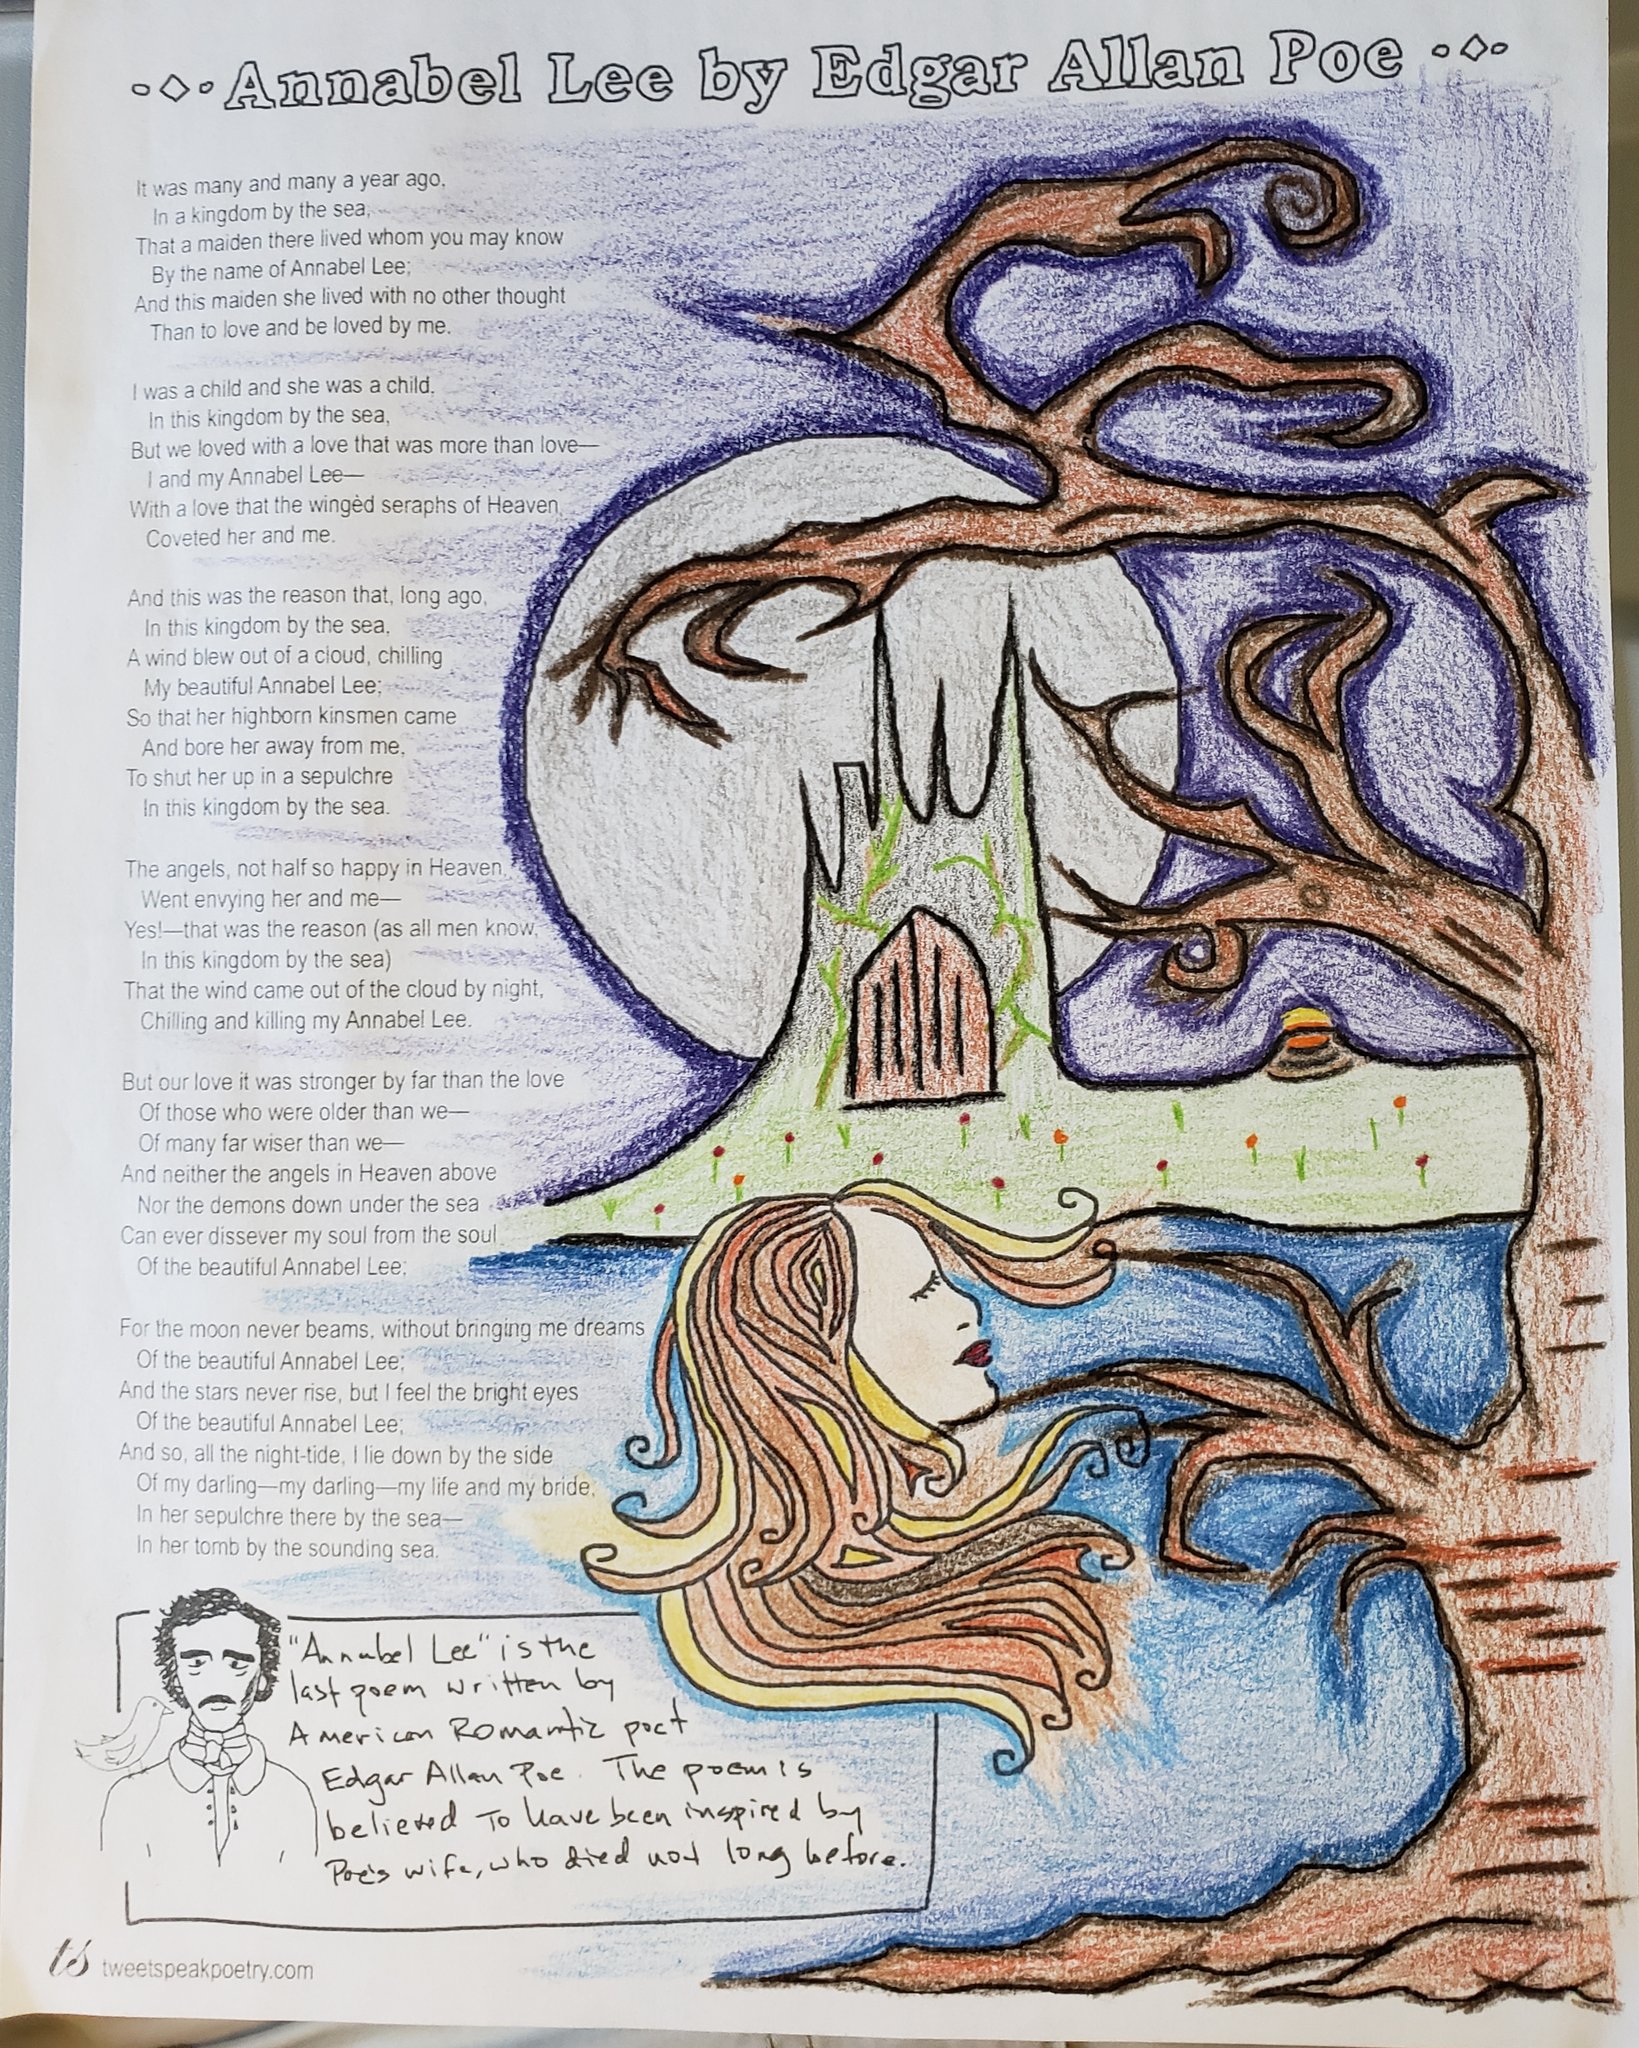 Annabel Lee by Edgar Allan Poe
It was many and many a year ago,
In a kingdom by the sea,
That a maiden there lived whom you may know
By the name of Annabel Lee;
And this maiden she lived with no other thought
Than to love and be loved by me.
I was a child and she was a child,
In this kingdom by the sea,
But we loved with a love that was more than love—
I and my Annabel Lee—
With a love that the wingèd seraphs of Heaven,
Coveted her and me.
And this was the reason that, long ago,
In this kingdom by the sea,
A wind blew out of a cloud, chilling
My beautiful Annabel Lee;
So that her highborn kinsmen came
And bore her away from me,
To shut her up in a sepulchre
In this kingdom by the sea.
The angels, not half so happy in Heaven,
Went envying her and me—
Yes!—that was the reason (as all men know,
In this kingdom by the sea)
That the wind came out of the cloud by night,
Chilling and killing my Annabel Lee.
But our love it was stronger by far than the love
Of those who were older than we—
Of many far wiser than we—
And neither the angels in Heaven above
Nor the demons down under the sea
Can ever dissever my soul from the soul
Of the beautiful Annabel Lee;
For the moon never beams, without bringing me dreams
Of the beautiful Annabel Lee;
And the stars never rise, but I feel the bright eyes
Of the beautiful Annabel Lee;
And so, all the night-tide, I lie down by the side
Of my darling—my darling—my life and my bride,
In her sepulchre there by the sea—
In her tomb by the sounding sea.
"Annabel Lee" is the
last poem written by
American Romantic poet
Edgar Allan Poe. The poem is
believed to have been inspired by
Poe's wife, who died not long before.
ts tweetspeakpoetry.com